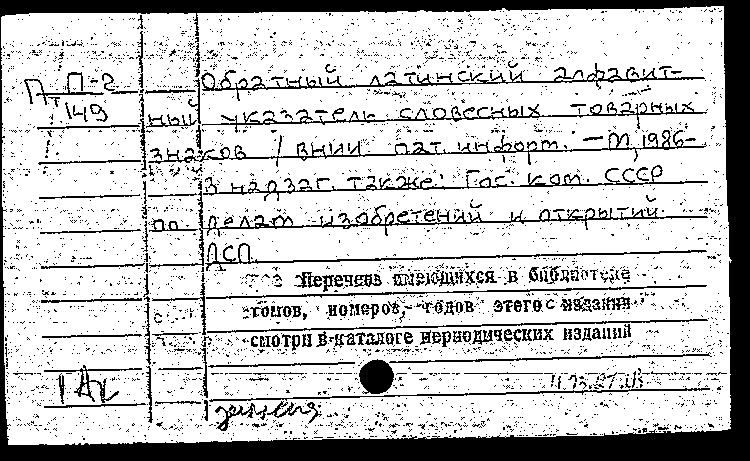 П П-2 Обратный латинский алфавит-
149 ный указатель словесных товарных
знаков / ВНИИ пат. информ. — М, 1986-
В надзаг. также: Гос. ком. СССР
по делам изобретений и открытий
ДСП.
Перечень имеющихся в библиотеке
томов, номеров, годов этого издания
смотри в каталоге периодических изданий